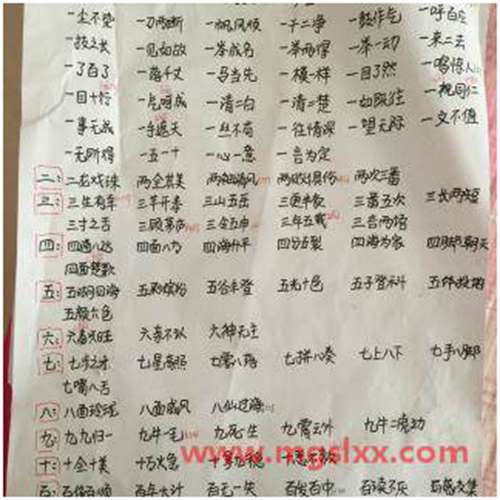 一尘不染 一刀两断 一帆风顺 一干二净 一鼓作气 一呼百应
一技之长 一见如故 一举成名 一举两得 一举一动 一来二去
一了百了 一落千丈 一马当先 一模一样 一目了然 一鸣惊人
一目十行 一气呵成 一清二白 一清二楚 一如既往 一视同仁
一事无成 一手遮天 一丝不苟 一往情深 一望无际 一文不值
一无所得 一五一十 一心一意 一言为定
二: 二龙戏珠 两全其美 两袖清风 两败俱伤 两次三番
三: 三生有幸 三羊开泰 三山五岳 三更半夜 三番五次 三长两短
三寸之舌 三顾茅庐 三令五申 三年五载 三言两语
四: 四通八达 四面八方 四海升平 四分五裂 四海为家 四脚朝天
四面楚歌
五: 五湖四海 五彩缤纷 五谷丰登 五光十色 五子登科 五体投地
五颜六色
六: 六畜兴旺 六亲不认 六神无主
七: 七步之才 七星高照 七零八落 七拼八凑 七上八下 七手八脚
七嘴八舌
八: 八面玲珑 八面威风 八仙过海
九: 九九归一 九牛一毛 九死一生 九霄云外 九牛二虎
十: 十全十美 十万火急 十拿九稳 十恶不赦
百: 百依百顺 百年大计 百无一失 百发百中 百读不厌 百战百胜
www.mgslxx.com